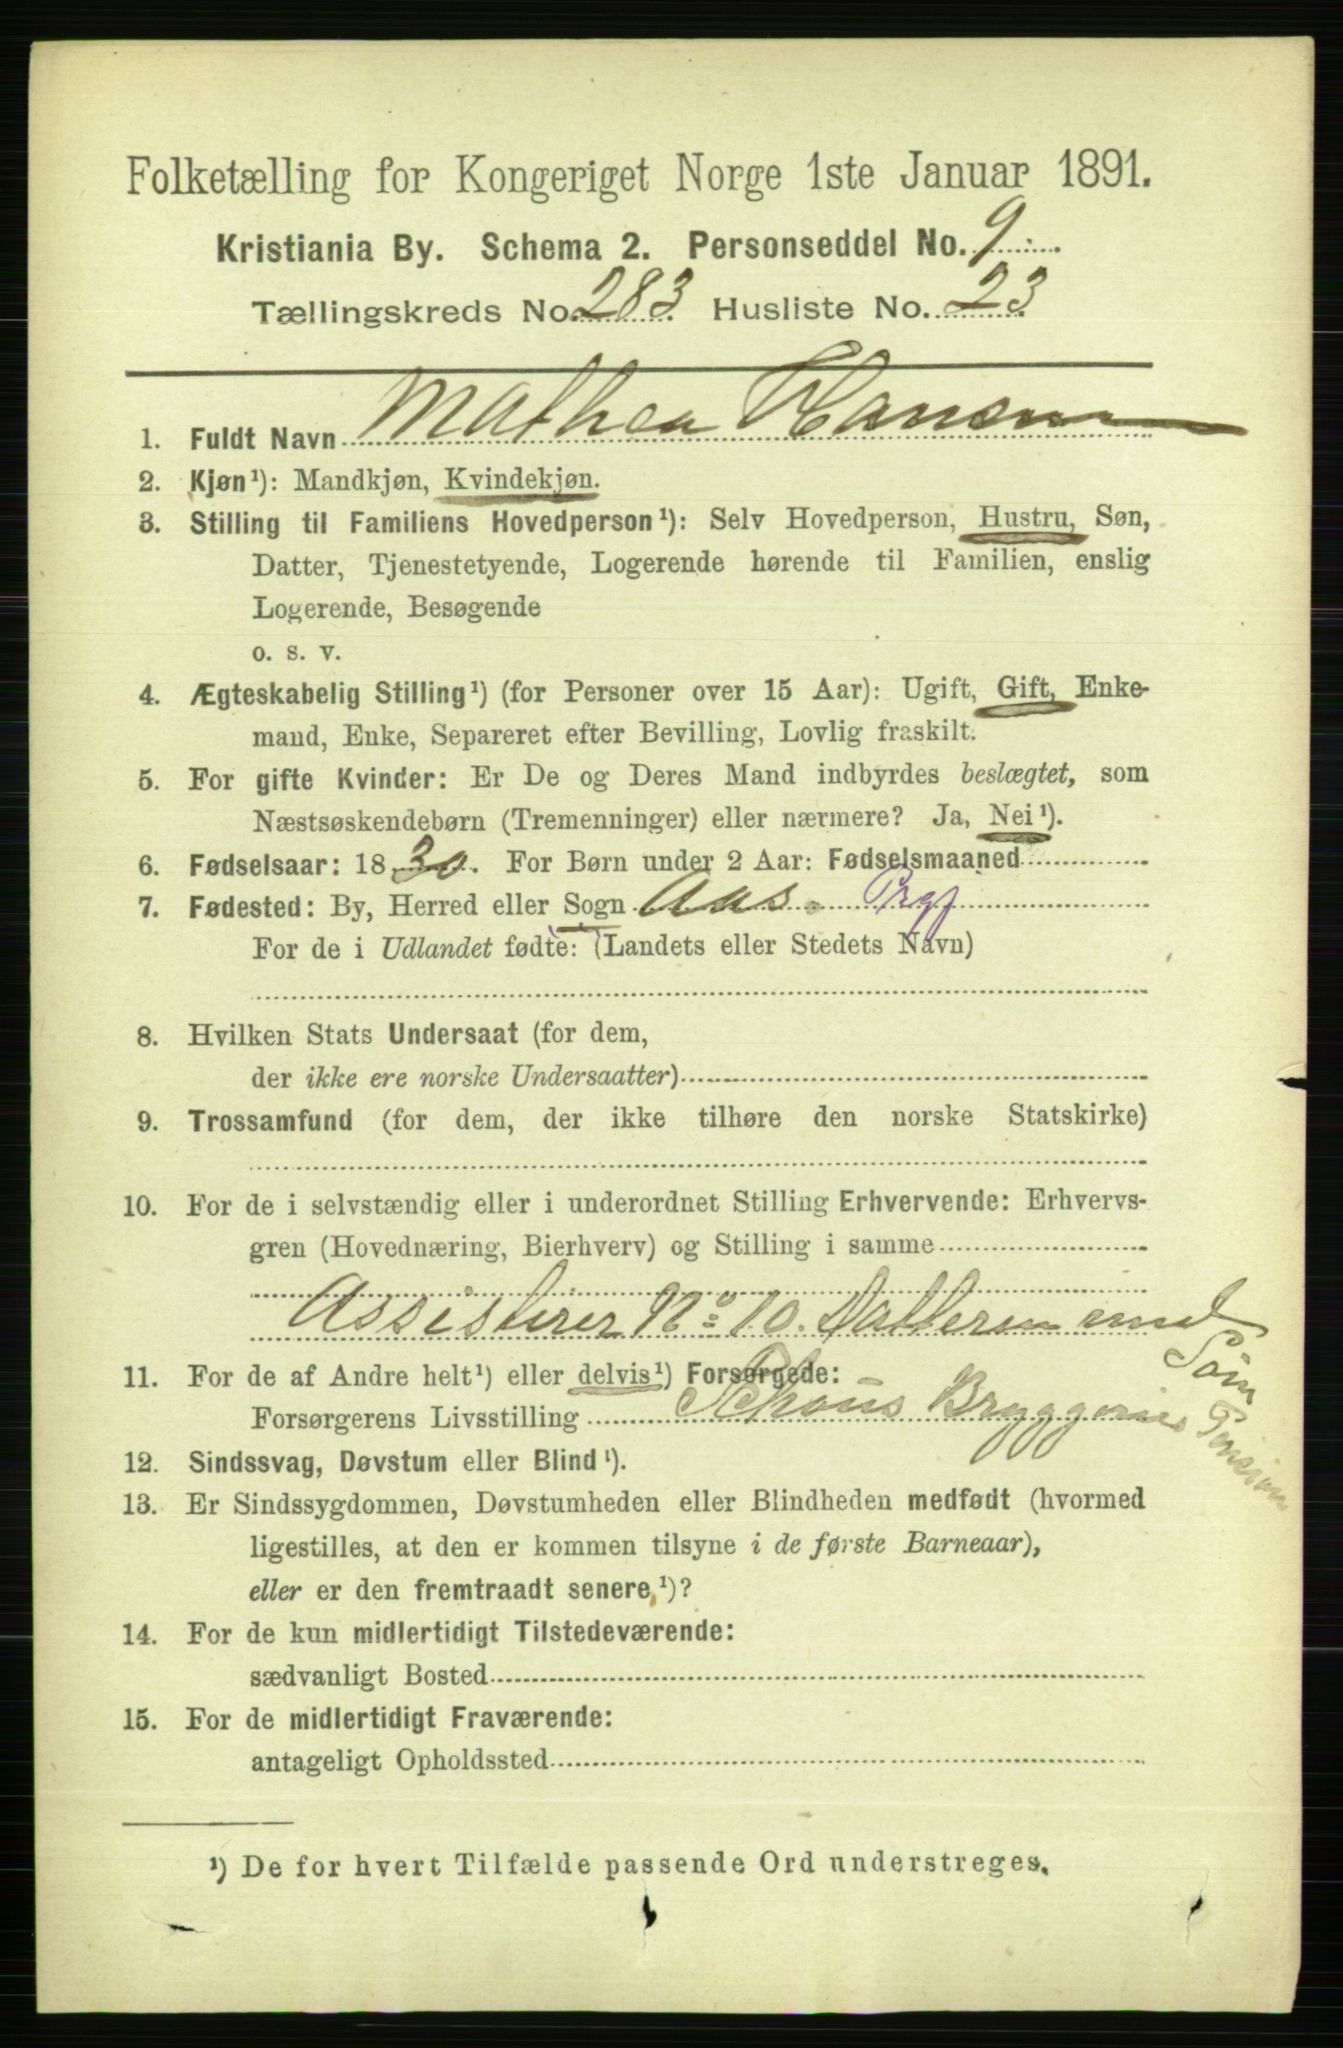 Folketælling for Kongeriget Norge 1ste Januar 1891.
Kristiania By. Schema 2. Personseddel No. 9
Tællingskreds No. 283 Husliste No. 23
1. Fuldt Navn Mathea Hansen
2. Kjøn¹): Mandkjøn, Kvindekjøn.
3. Stilling til Familiens Hovedperson¹): Selv Hovedperson, Hustru, Søn,
Datter, Tjenestetyende, Logerende hørende til Familien, enslig
Logerende, Besøgende
o. s. v.
4. Ægteskabelig Stilling¹) (for Personer over 15 Aar): Ugift, Gift, Enke-
mand, Enke, Separeret efter Bevilling, Lovlig fraskilt.
5. For gifte Kvinder: Er De og Deres Mand indbyrdes beslægtet, som
Næstsøskendebørn (Tremenninger) eller nærmere? Ja, Nei¹).
6. Fødselsaar: 1830. For Børn under 2 Aar: Fødselsmaaned
7. Fødested: By, Herred eller Sogn Aas. Prgj
For de i Udlandet fødte: (Landets eller Stedets Navn)
8. Hvilken Stats Undersaat (for dem,
der ikke ere norske Undersaatter)
9. Trossamfund (for dem, der ikke tilhøre den norske Statskirke)
10. For de i selvstændig eller i underordnet Stilling Erhvervende: Erhvervs-
gren (Hovednæring, Bierhverv) og Stilling i samme
Assisterer No 10. Datteren med
Söm
11. For de af Andre helt¹) eller delvis¹) Forsørgede:
Forsørgerens Livsstilling Schous Bryggeries Pension
12. Sindssvag, Døvstum eller Blind¹).
13. Er Sindssygdommen, Døvstumheden eller Blindheden medfødt (hvormed
ligestilles, at den er kommen tilsyne i de første Barneaar),
eller er den fremtraadt senere,¹)?
14. For de kun midlertidigt Tilstedeværende:
sædvanligt Bosted
15. For de midlertidigt Fraværende:
antageligt Opholdssted
¹) De for hvert Tilfælde passende Ord understreges.